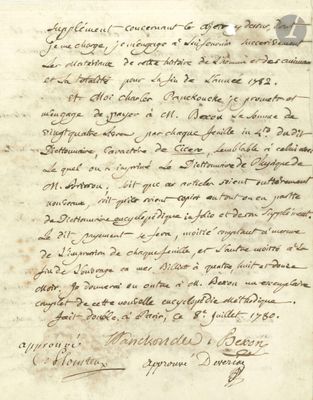 Supplement concernant le
je me charge, je m'engage à lui fournir successivement
les matériaux de cette histoire de l'homme et des animaux
en la totalité pour la fin de l'année 1782.
Et Moi Charles Panckoucke je promets et
m'engage de payer à M. Bexon la somme de
vingt quatre livres par chaque feuille in 4o du dit
Dictionnaire, Caractère de Cicero, semblable à celui avec
lequel on a imprimé le Dictionnaire de Physique de
M. soit que ces articles soient entièrement
nouveaux, soit qu'ils soient copiés en tout ou en partie
du Dictionnaire encyclopédique in folio et de son Supplément.
Le dit payement se fera, moitié comptant à mesure
de l'impression de chaque feuille, et l'autre moitié à la
fin de l'ouvrage en mes Billets à quatre, huit et douze
mois. Je donnerai en outre à M. Bexon un exemplaire
complet de cette nouvelle encyclopédie méthodique.
fait double, à Paris, ce 8e. Juillet 1780.
approuvé Panckoucke Bexon
approuvé